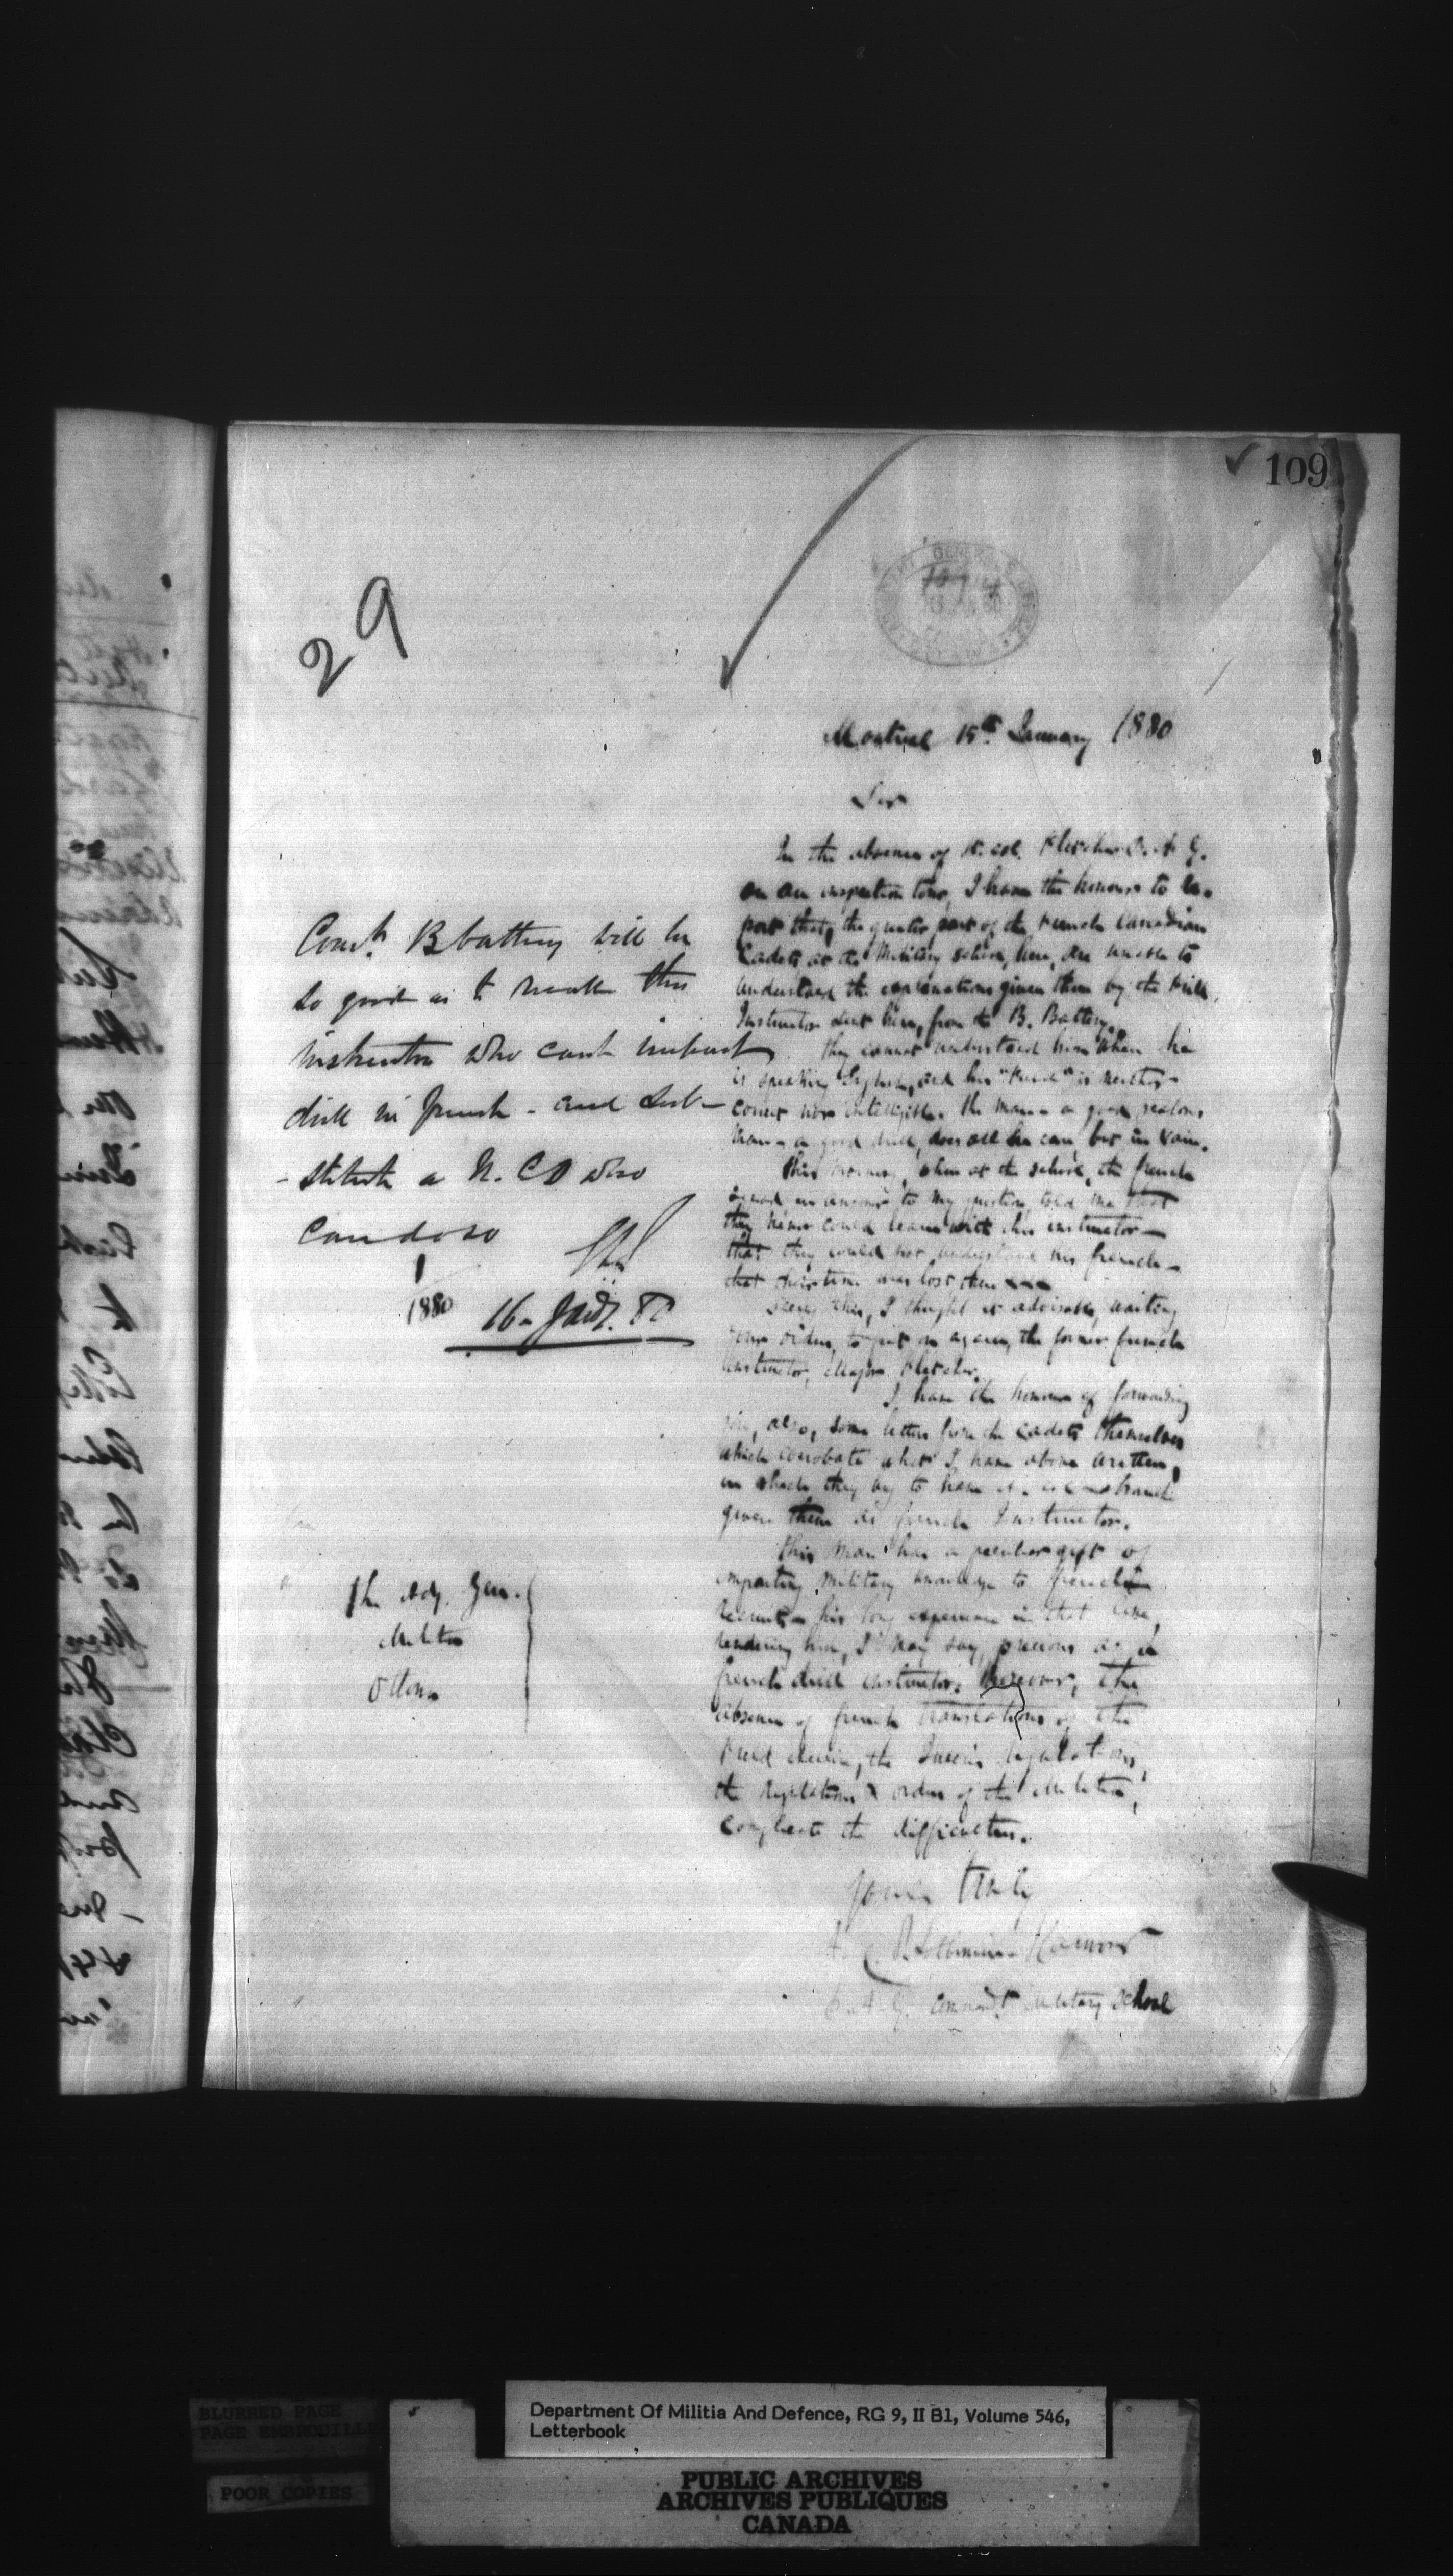 109
29
Montreal 15th January 1880
Sir
In the absence of Lt. Col. Fletcher D. A. G.
on an inspection tour, I have the honour to re-
port that, the greater part of the French Canadian
Cadets at the Military school, here, are unable to
understand the explanations given them by the Drill
Instructor sent here, from the B. Battery.
They cannot understand him when he
is speaking English, and his "French" is neither
correct nor intelligible. The man a good
a good drill, does all he can, but in vain.
This morning, when at the school, the french
squad in answer to my question, told me that
they never could learn with this instructor —
that they could not understand his french —
that their time was lost there
Seeing this, I thought it advisable, waiting
your orders, to put on again, the former french
Instructor, Major Fletcher.
I have the honour of forwarding
you, also, some letters from the cadets themselves
which corrobate what I have above written,
in which they beg to have
given them as french Instructor.
This man has a peculiar gift of
imparting military knowledge to french
recruits his long experience in that line,
rendering him, I may say, precious as a
french drill instructor. Moreover, the
absence of french translations of the
Field Exercise, the Queen's Regulations,
the regulations & orders of the Militia,
complicate the difficulties.
Yours truly
Harwood
D. A. G. Commandt Military School
Comdt B battery will be
so good as to recall this
instructor who can't impart
drill in french - and sub-
- stitute a N. C O who
can do so
1880
16 - Jany. 80
The Adj. Gen.
Militia
Ottawa
BLURRED PAGE
PAGE EMBROUILLÉE
POOR COPIES
Department Of Militia And Defence, RG 9, II B1, Volume 546,
Letterbook
PUBLIC ARCHIVES
ARCHIVES PUBLIQUES
CANADA